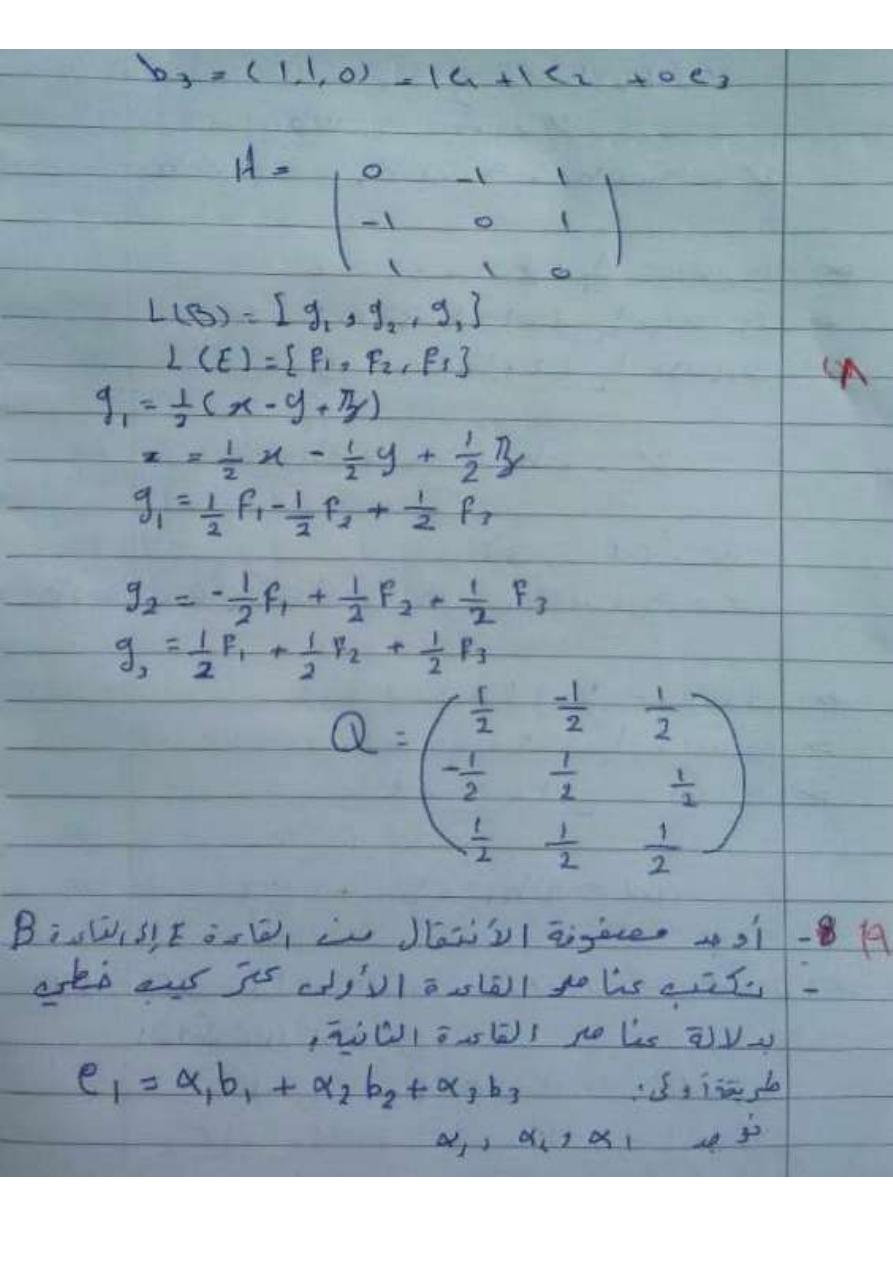 b₃ = (1,1,0) = 1e₁ + 1e₂ + 0e₃
H = ( 0 -1 1
-1 0 1
1 1 0 )
L(B) = {g₁, g₂, g₃}
L(E) = {f₁, f₂, f₃}
g₁ = 1/2 (x - y + z)
= 1/2 x - 1/2 y + 1/2 z
g₁ = 1/2 f₁ - 1/2 f₂ + 1/2 f₃
g₂ = -1/2 f₁ + 1/2 f₂ + 1/2 f₃
g₃ = 1/2 f₁ + 1/2 f₂ + 1/2 f₃
Q = ( 1/2 -1/2 1/2
-1/2 1/2 1/2
1/2 1/2 1/2 )
8- أوجد مصفوفة الأنتقال من القاعدة E إلى القاعدة B
- نكتب عناصر القاعدة الأولى كتركيب خطي
بدلالة عناصر القاعدة الثانية,
طريقة أولى: e₁ = α₁b₁ + α₂b₂ + α₃b₃
نوجد